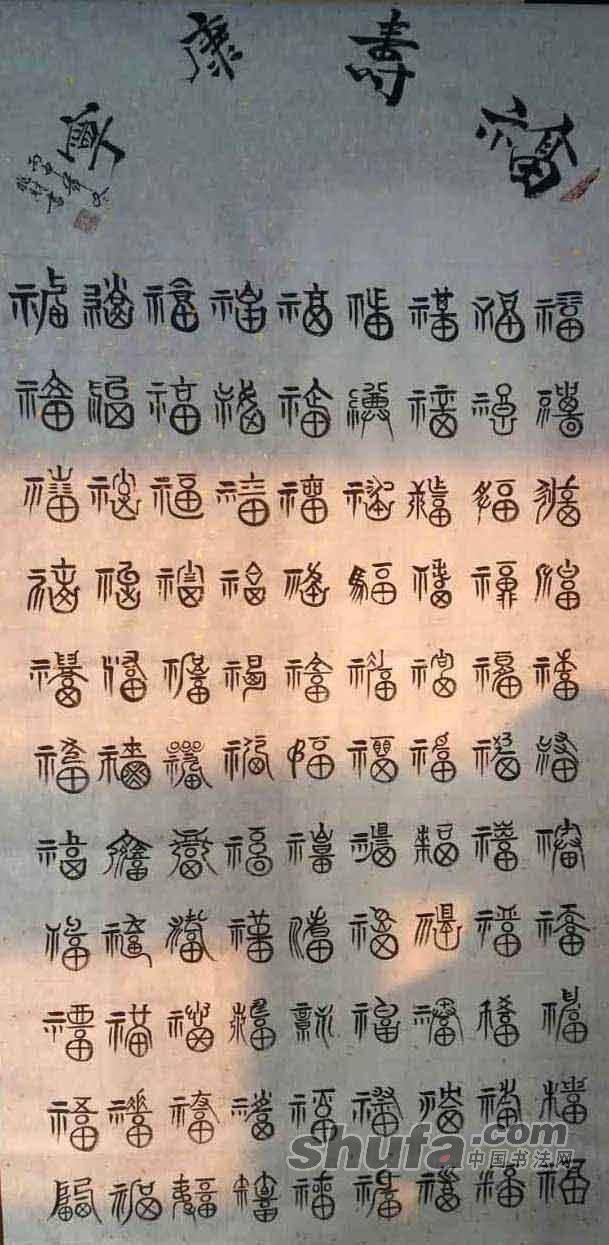 福寿康寧
福福福福福福福福福
福福福福福福福福福
福福福福福福福福福
福福福福福福福福福
福福福福福福福福福
福福福福福福福福福
福福福福福福福福福
福福福福福福福福福
福福福福福福福福福
福福福福福福福福福
福福福福福福福福福
shufa.com
中国书法网